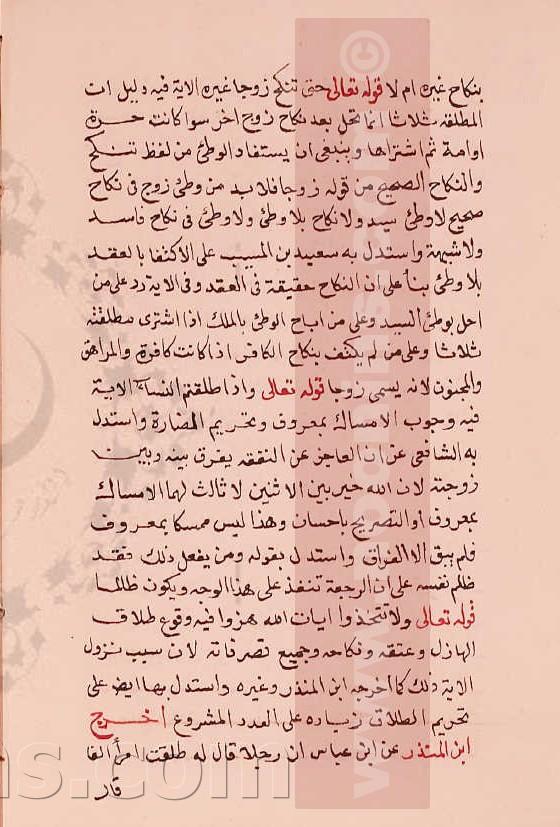 بنكاح غيره ام لا قوله تعالى حتى تنكح زوجا غيره الاية فيه دليل ان
المطلقة ثلاثا انما تحل بعد نكاح زوج اخر سوا كانت حرة
اوامة ثم اشتراها وينبغى ان يستفاد الوطئ من لفظ تنكح
والنكاح الصحيح من قوله زوجا فلا بد من وطئ زوج فى نكاح
صحيح لا وطئ سيد ولا نكاح بلا وطئ ولا وطئ فى نكاح فاسد
ولا شبهة واستدل به سعيد بن المسيب على الاكتفا بالعقد
بلا وطئ بنا على ان النكاح حقيقة فى العقد وفى الاية رد على من
احل بوطئ السيد وعلى من اباح الوطئ بالملك اذا اشترى مطلقته
ثلاثا وعلى من لم يكتف بنكاح الكافر اذا كانت كافرة والمراهق
والمجنون لانه يسمى زوجا قوله تعالى واذا طلقتم النساء الاية
فيه وجوب الامساك بمعروف وتحريم المضارة واستدل
به الشافعى عن ان العاجز عن النفقه يفرق بينه وبين
زوجته لان الله خير بين الاثنين لا ثالث لهما الامساك
بمعروف او التصريح باحسان وهذا ليس ممسكا بمعروف
فلم يبق الا الفراق واستدل بقوله ومن يفعل ذلك فقد
ظلم نفسه على ان الرجعة تنفذ على هذا الوجه ويكون ظالما
قوله تعالى ولا تتخذوا ايات الله هزوا فيه وقوع طلاق
الهازل وعتقه ونكاحه وجميع تصرفاته لان سبب نزول
الاية ذلك كما اخرجه ابن المنذر وغيره واستدل بها ايض على
تحريم الطلاق زياده على العدد المشروع اخرج
ابن المنذر عن ابن عباس ان رجلا قال له طلقت امرأتى الفا
قار
www.nooonhis.com ©
ns.com